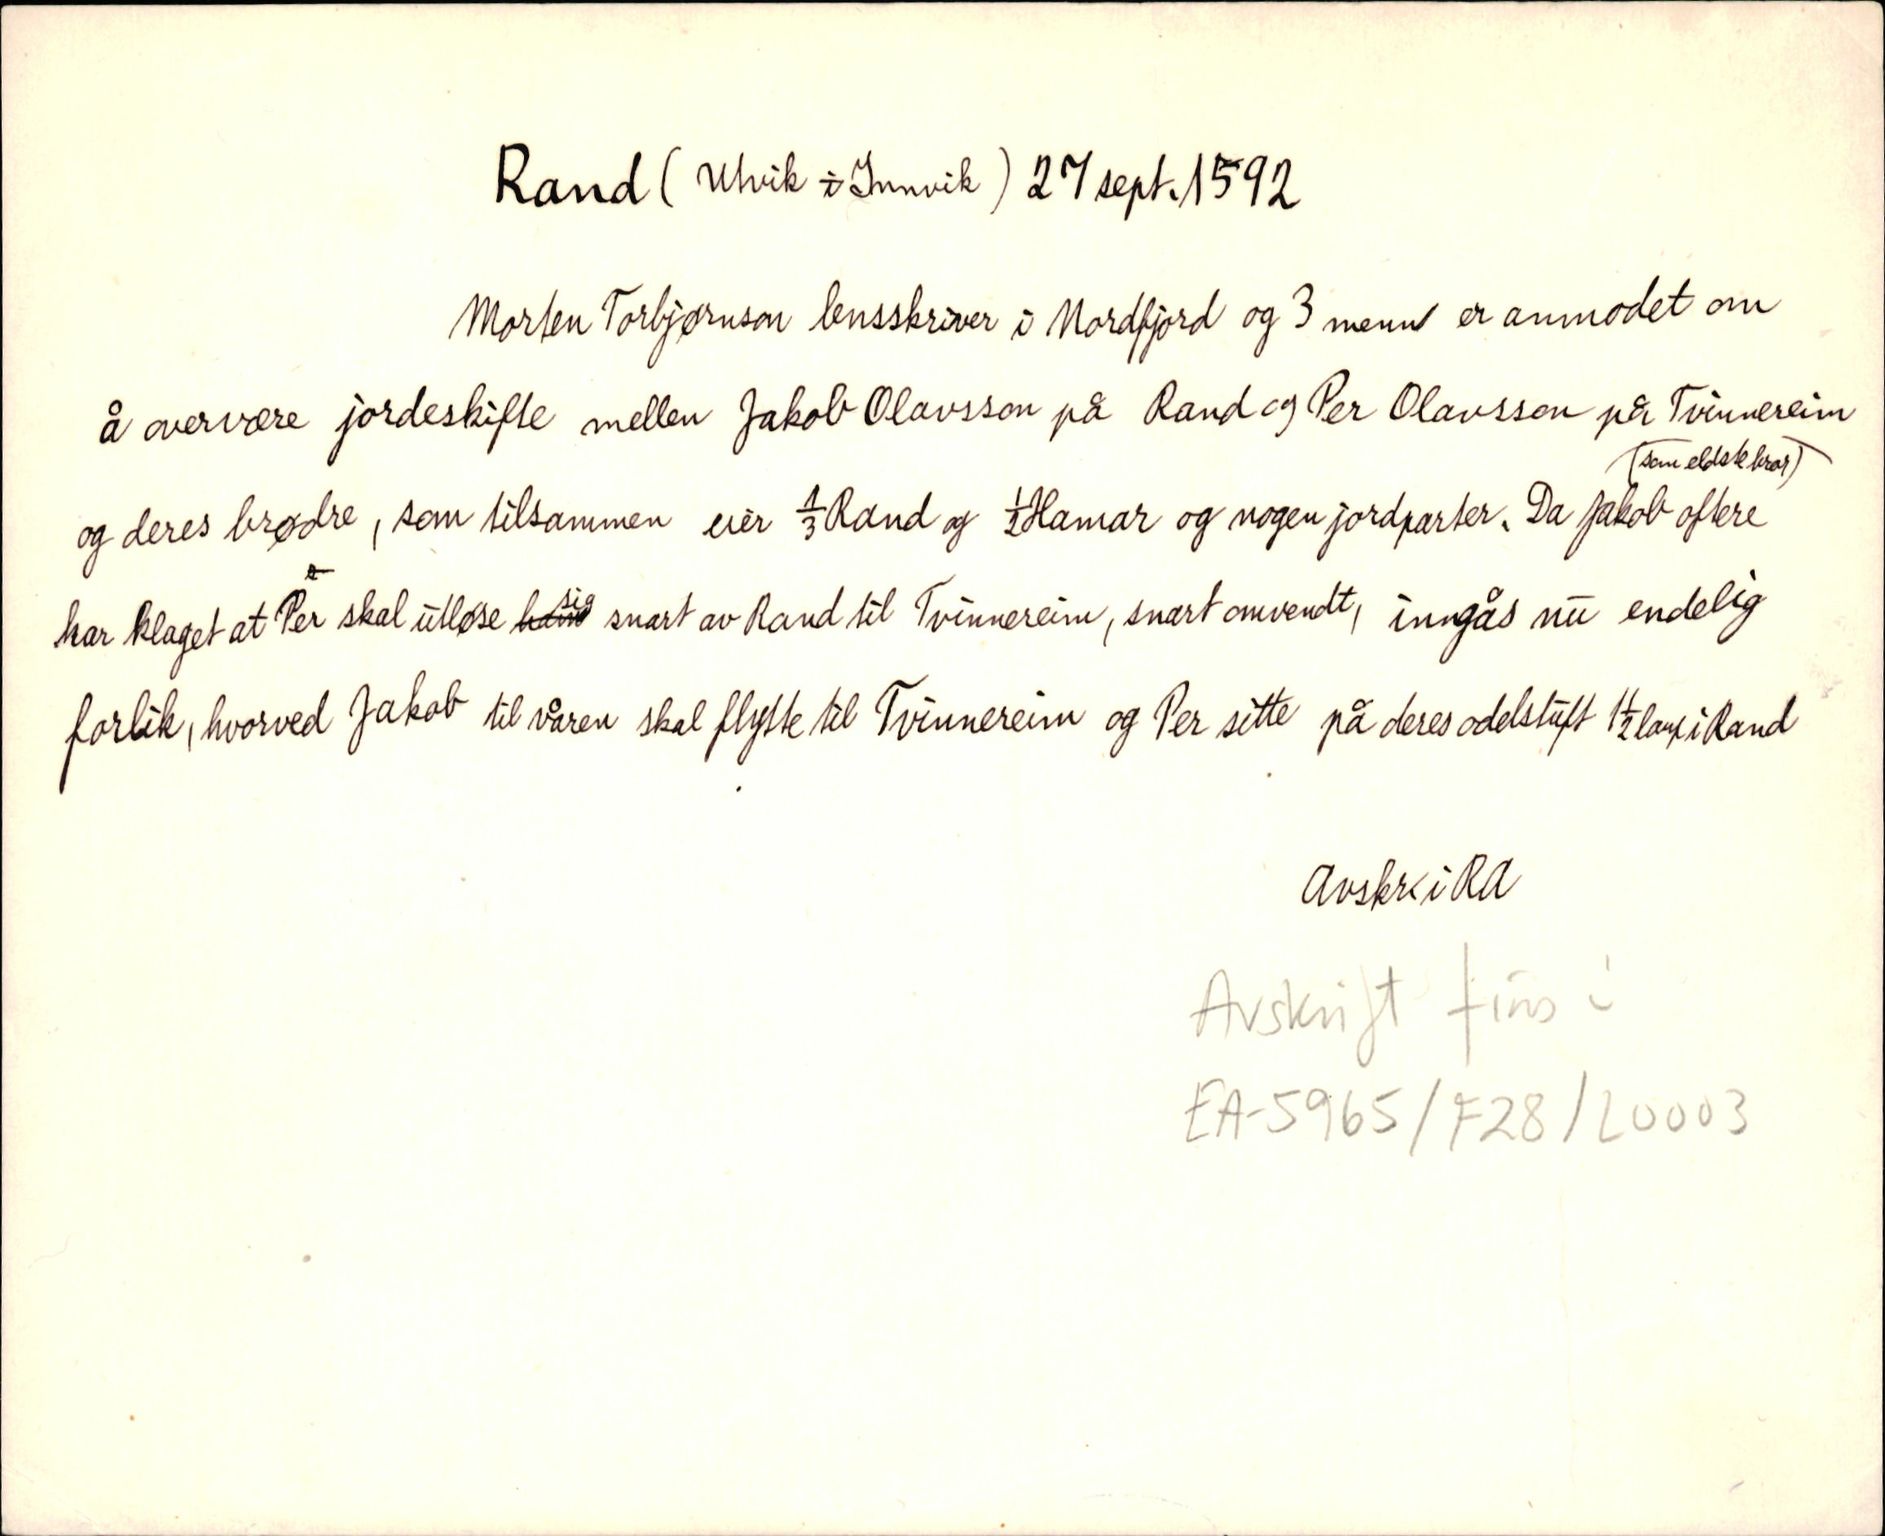 Rand (Utvik i Innvik) 27 sept. 1592
Morten Torbjørnson lensskriver i Nordfjord og 3 menn er anmodet om
å overvære jordeskifte mellen Jakob Olavsson på Rand og Per Olavsson på Tvinnereim
(som eldste bror)
og deres brødre, som tilsammen eier 1/3 Rand og 1/2 Hamar og nogen jordparter. Da Jakob oftere
har klaget at Per skal utløse sig snart av Rand til Tvinnereim, snart omvendt, inngås nu endelig
forlik, hvorved Jakob til våren skal flytte til Tvinnereim og Per sitte på deres odelstuft 1 1/2 laup i Rand
Avskr. i RA
Avskrift fins i
EA-5965/F28/L0003